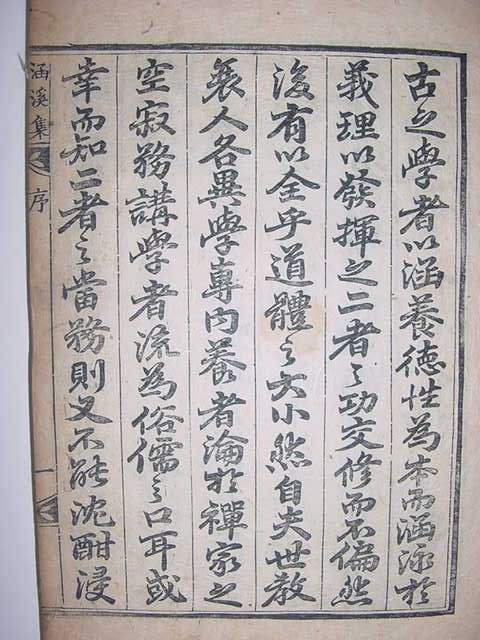 古之學者以涵養德性為本而涵泳於
義理以發揮之二者之功交修而不偏然
後有以全乎道體之大小然自夫世教
衰人各異學專內養者淪於禪家之
空寂務講學者流為俗儒之口耳或
幸而知二者之當務則又不能沈酣浸
涵溪集
序
一